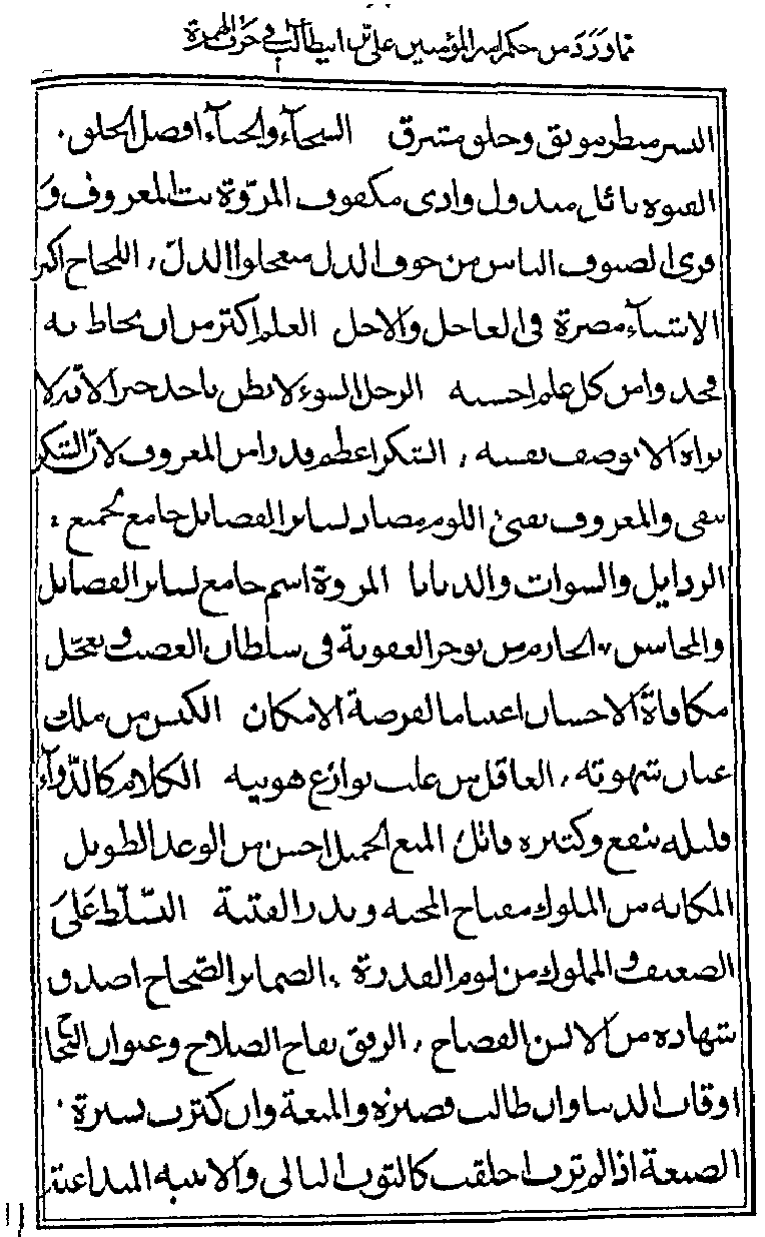 مما ورد من حكم امير المؤمنين علي بن ابيطالب في حرف الهمزة
البشر منظر مونق وخلق مشرق السخآء والحيآء افضل الخلق.
الفتوة نائل مبذول واذى مكفوف المروّة بث المعروف و
قرى الضيوف الناس من خوف الذل متعجلوا الذلّ، اللجاج اكثر
الاشيآء مضرة في العاجل والاجل العلم اكثر من ان يحاط به
فخذوا من كل علم احسنه الرجل السوء لا يظن باحد خيرا لانّه لا
يراه الا بوصف نفسه، الشكر اعظم قدرا من المعروف لانّ الشكر
يبقى والمعروف يفنى اللوم مضاد لساير الفضايل جامع لجميع
الرذايل والسوات والدنايا المروة اسم جامع لساير الفضايل
والمحاسن، الحازم من يوخر العقوبة في سلطان الغضب ويعجّل
مكافاة الاحسان اغتناما لفرصة الامكان الكيس من ملك
عنان شهوته، العاقل من غلب نوازع هويته الكلام كالدّوآء
قليله ينفع وكثيره قاتل المنع الجميل احسن من الوعد الطويل
المكانة من الملوك مفتاح المحنة وبذر الفتنة التسّلط على
الضعيف والمملوك من لوم القدرة، الضماير الصّحاح اصدق
شهادة من الالسن الفصاح، الرفق مفتاح الصلاح وعنوان النجاح
اوقات الدنيا وان طالت قصيرة والمتعة وان كثرت يسيرة.
الصنيعة اذا لم ترب اخلقت كالثوب البالي والابنية المتداعية
١١